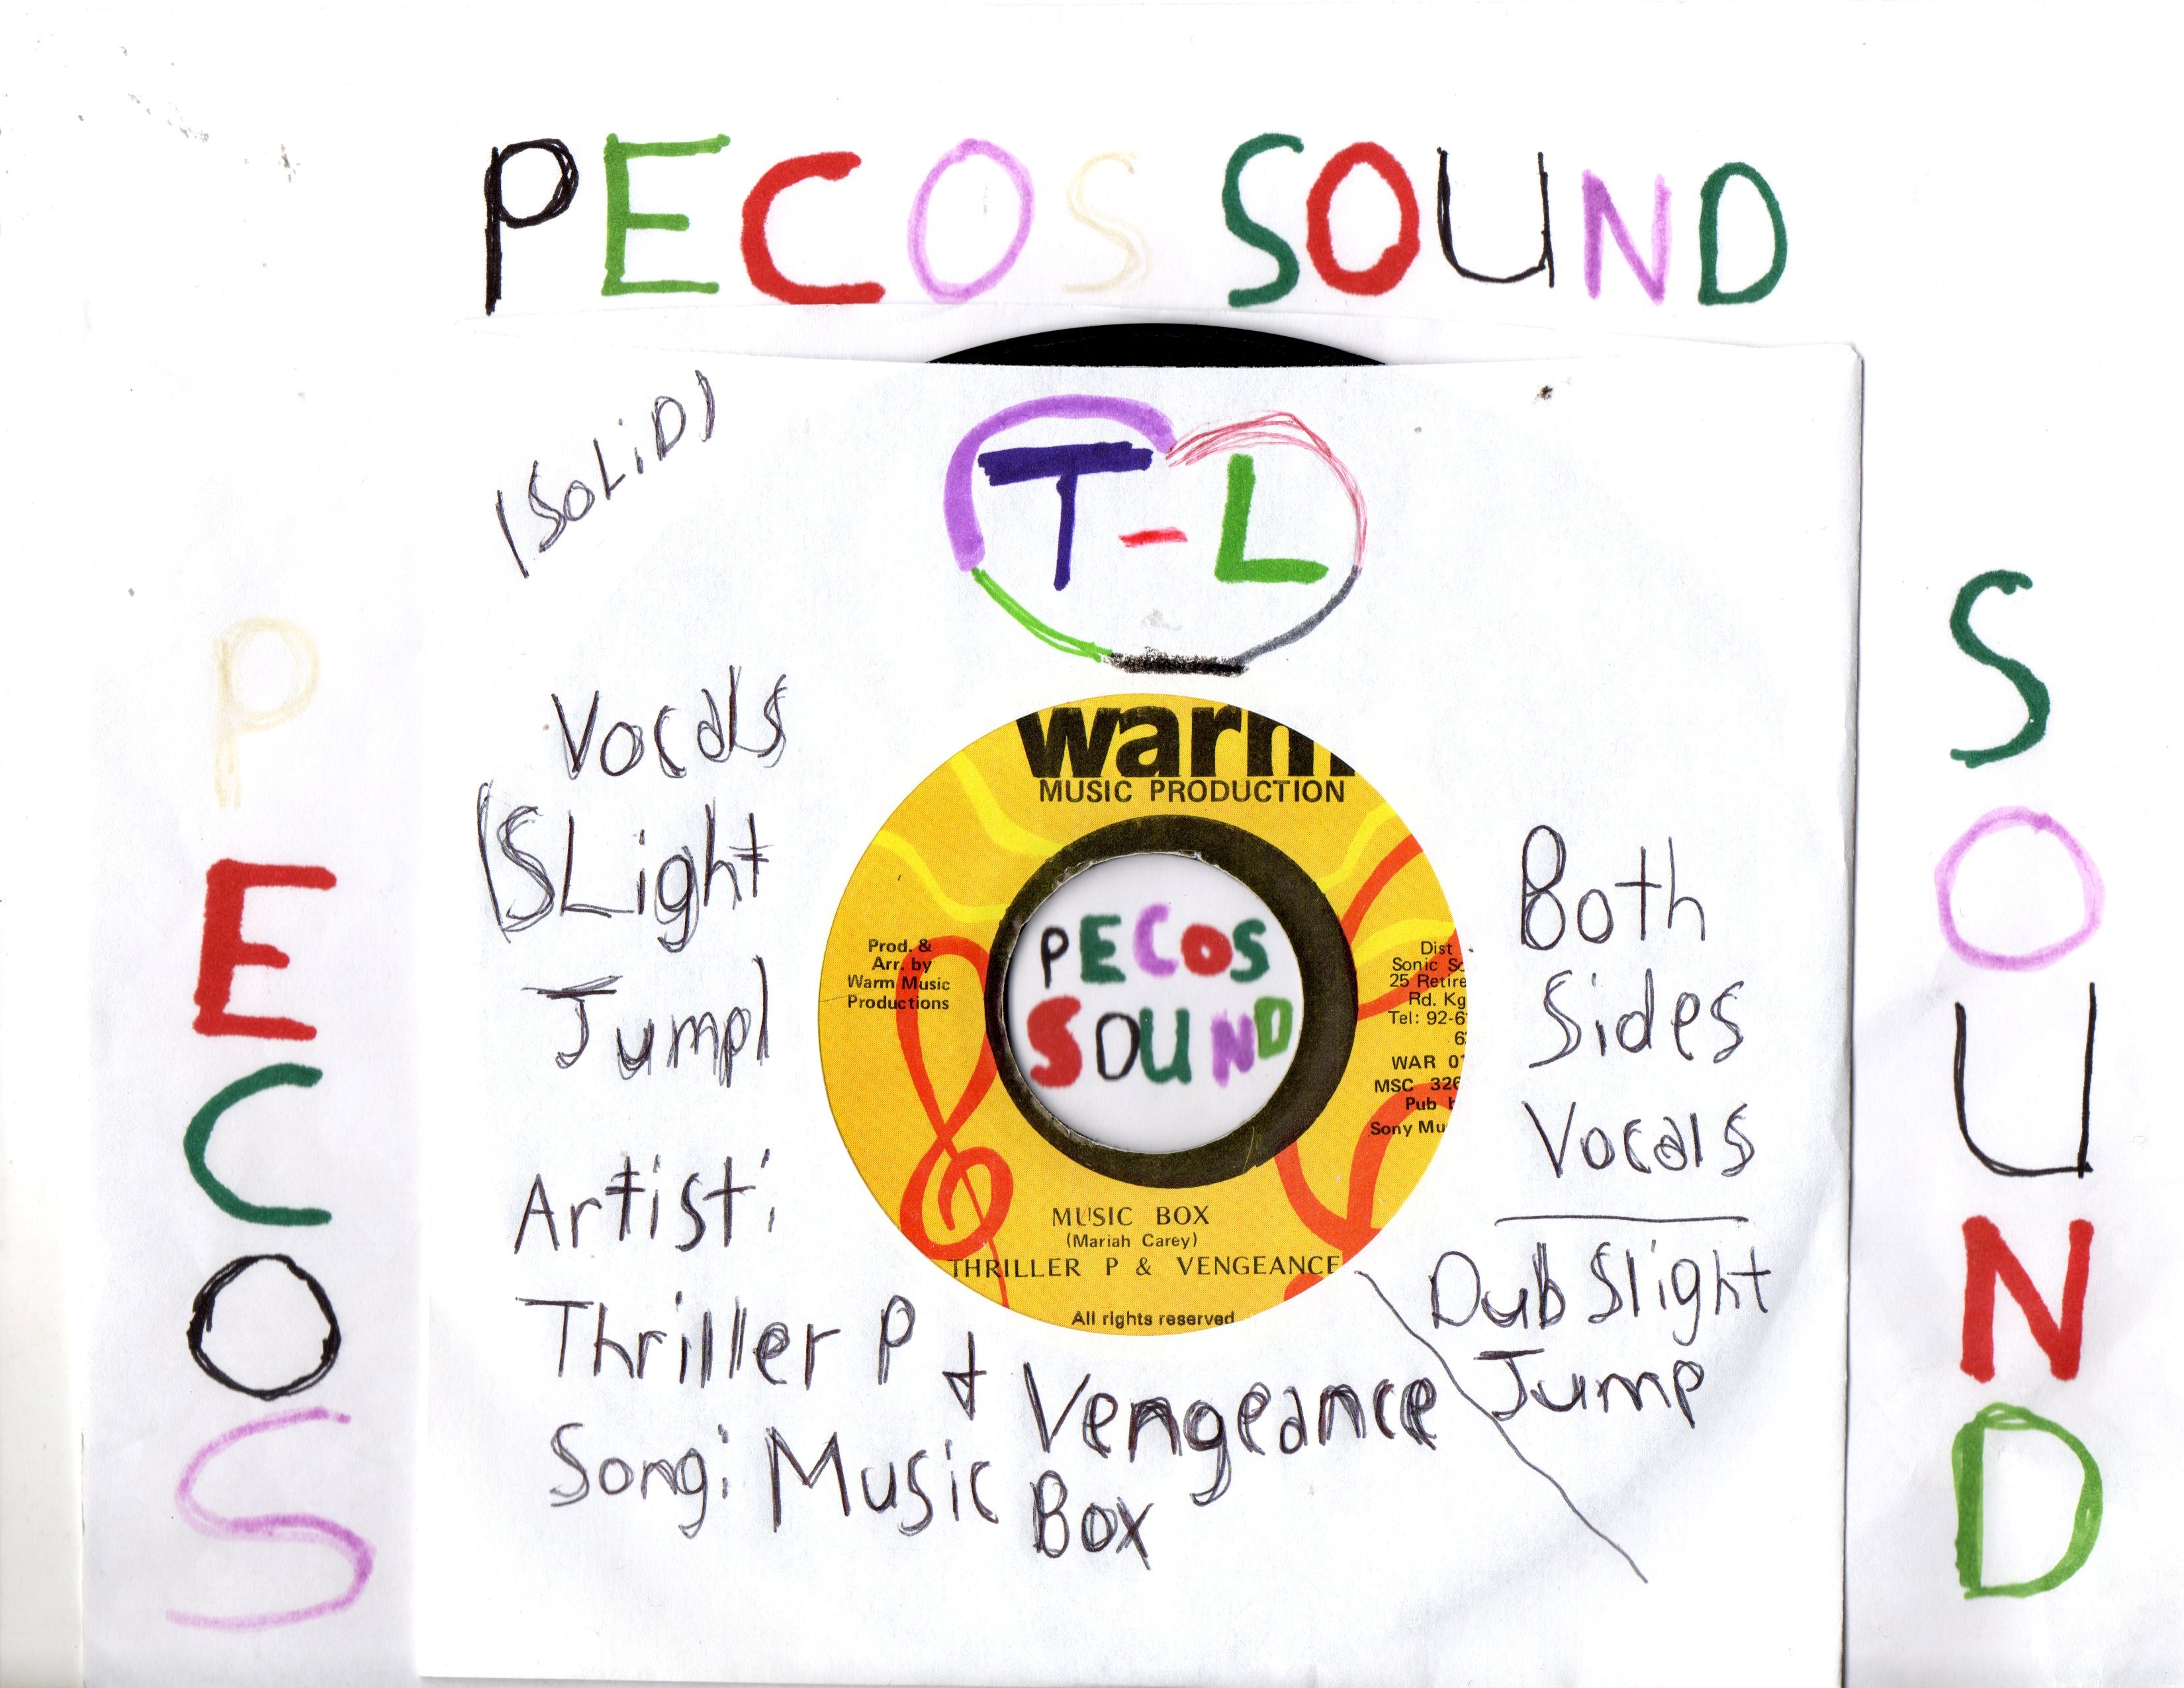 PECOS SOUND
(SOLiD)
T-L
PECOS
SOUND
Vocals
(SLight
Jump)
Artist:
Thriller P & Vengeance
Song: Music Box
warm
MUSIC PRODUCTION
Prod. &
Arr. by
Warm Music
Productions
PECOS
SOUND
Dist
Sonic
25 Retire
Rd. Kg
Tel: 92-6
WAR 0
MSC 326
Pub
Sony Mu
MUSIC BOX
(Mariah Carey)
THRILLER P & VENGEANCE
All rights reserved
Both
Sides
Vocals
Dub Slight
Jump